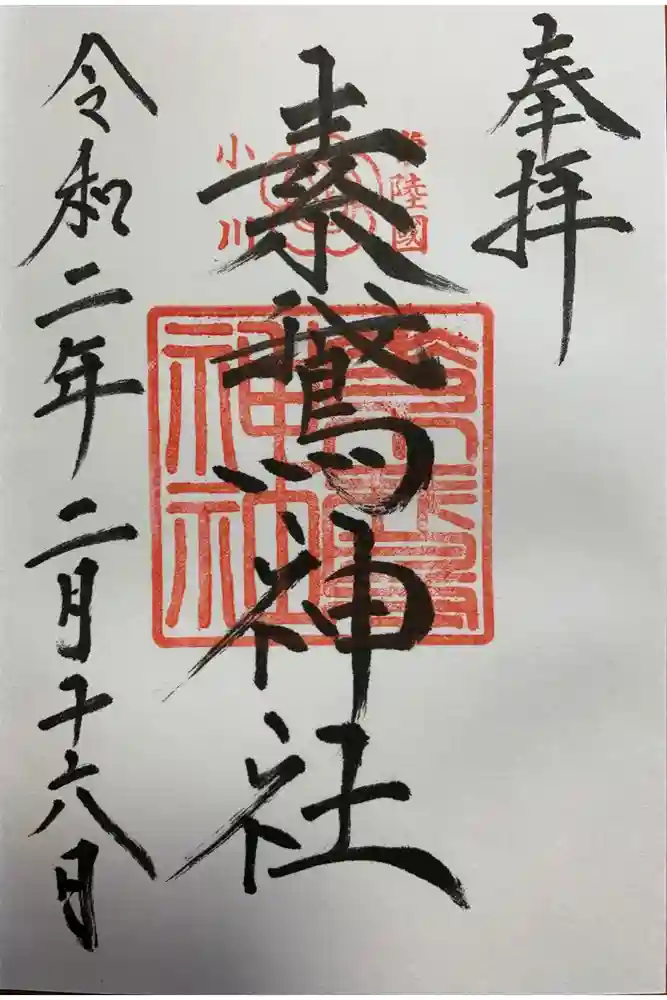 奉拝
常陸國
小川
素鵞神社
令和二年二月十六日